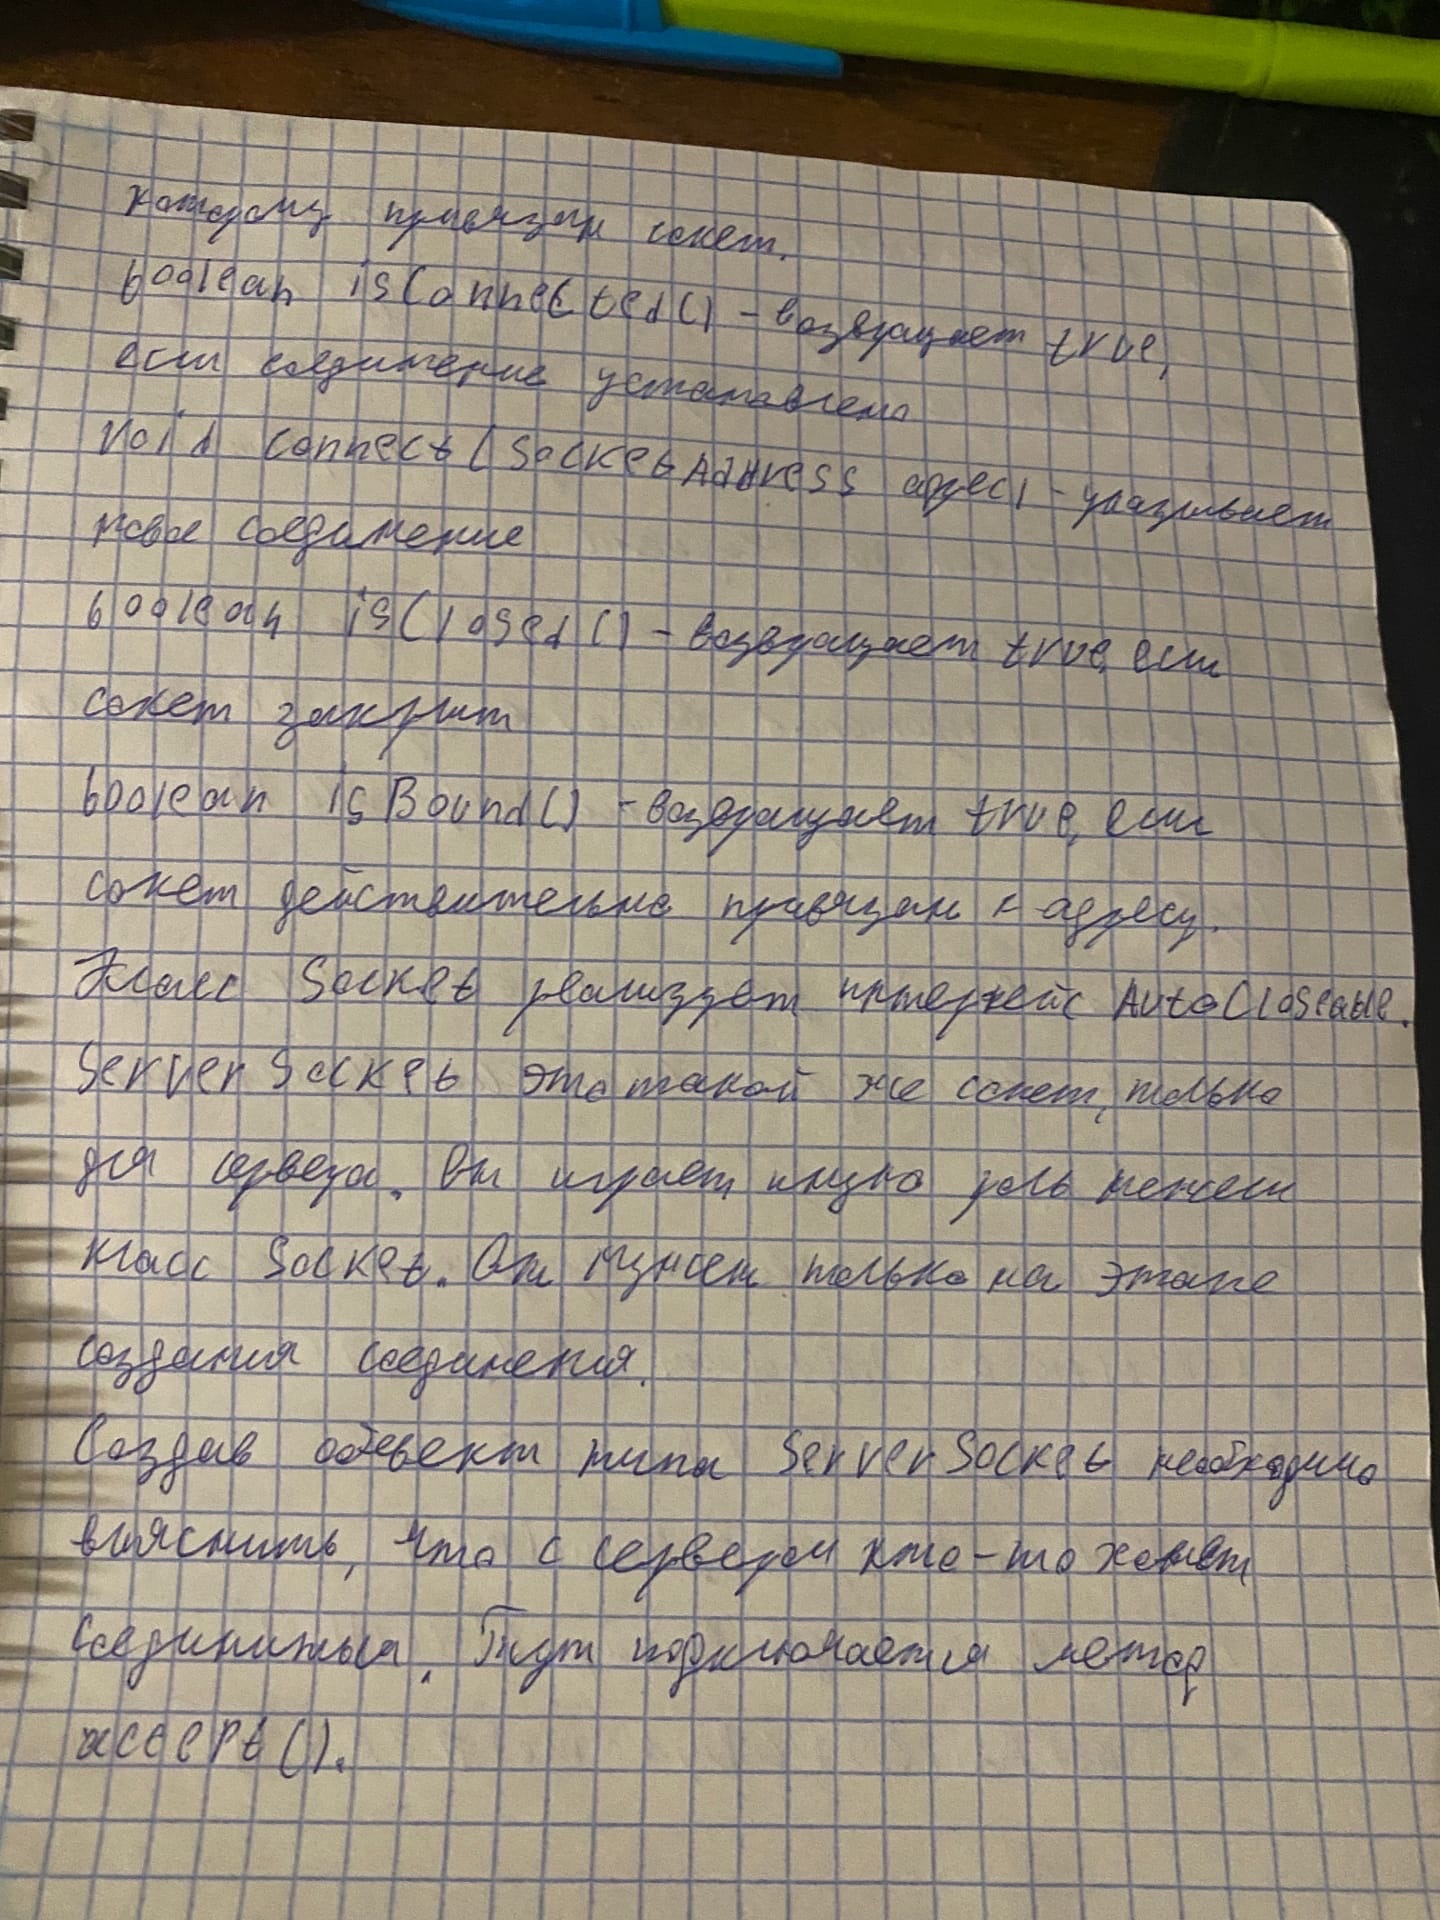 которому привязан сокет.
boolean isConnected() - возвращает true,
если соединение установлено
void connect(SocketAddress адрес) - указывает
новое соединение
boolean isClosed() - возвращает true, если
сокет закрыт
boolean isBound() - возвращает true, если
сокет действительно привязан к адресу.
Класс Socket реализует интерфейс AutoCloseable.
ServerSocket это такой же сокет, только
для сервера. Он играет иную роль нежели
класс Socket. Он нужен только на этапе
создания соединения.
Создав объект типа ServerSocket необходимо
выяснить, что с сервером кто-то хочет
соединиться. Тут подключается метод
accept().